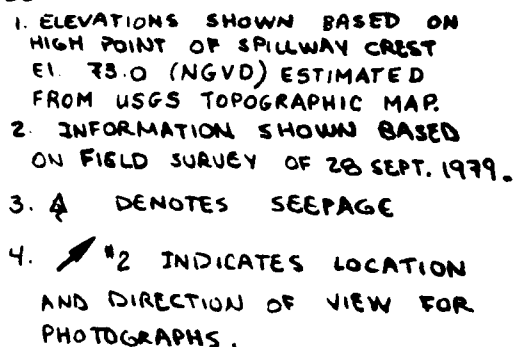 1. ELEVATIONS SHOWN BASED ON
HIGH POINT OF SPILLWAY CREST
El. 73.0 (NGVD) ESTIMATED
FROM USGS TOPOGRAPHIC MAP.
2. INFORMATION SHOWN BASED
ON FIELD SURVEY OF 28 SEPT. 1979.
3. DENOTES SEEPAGE
4. #2 INDICATES LOCATION
AND DIRECTION OF VIEW FOR
PHOTOGRAPHS.